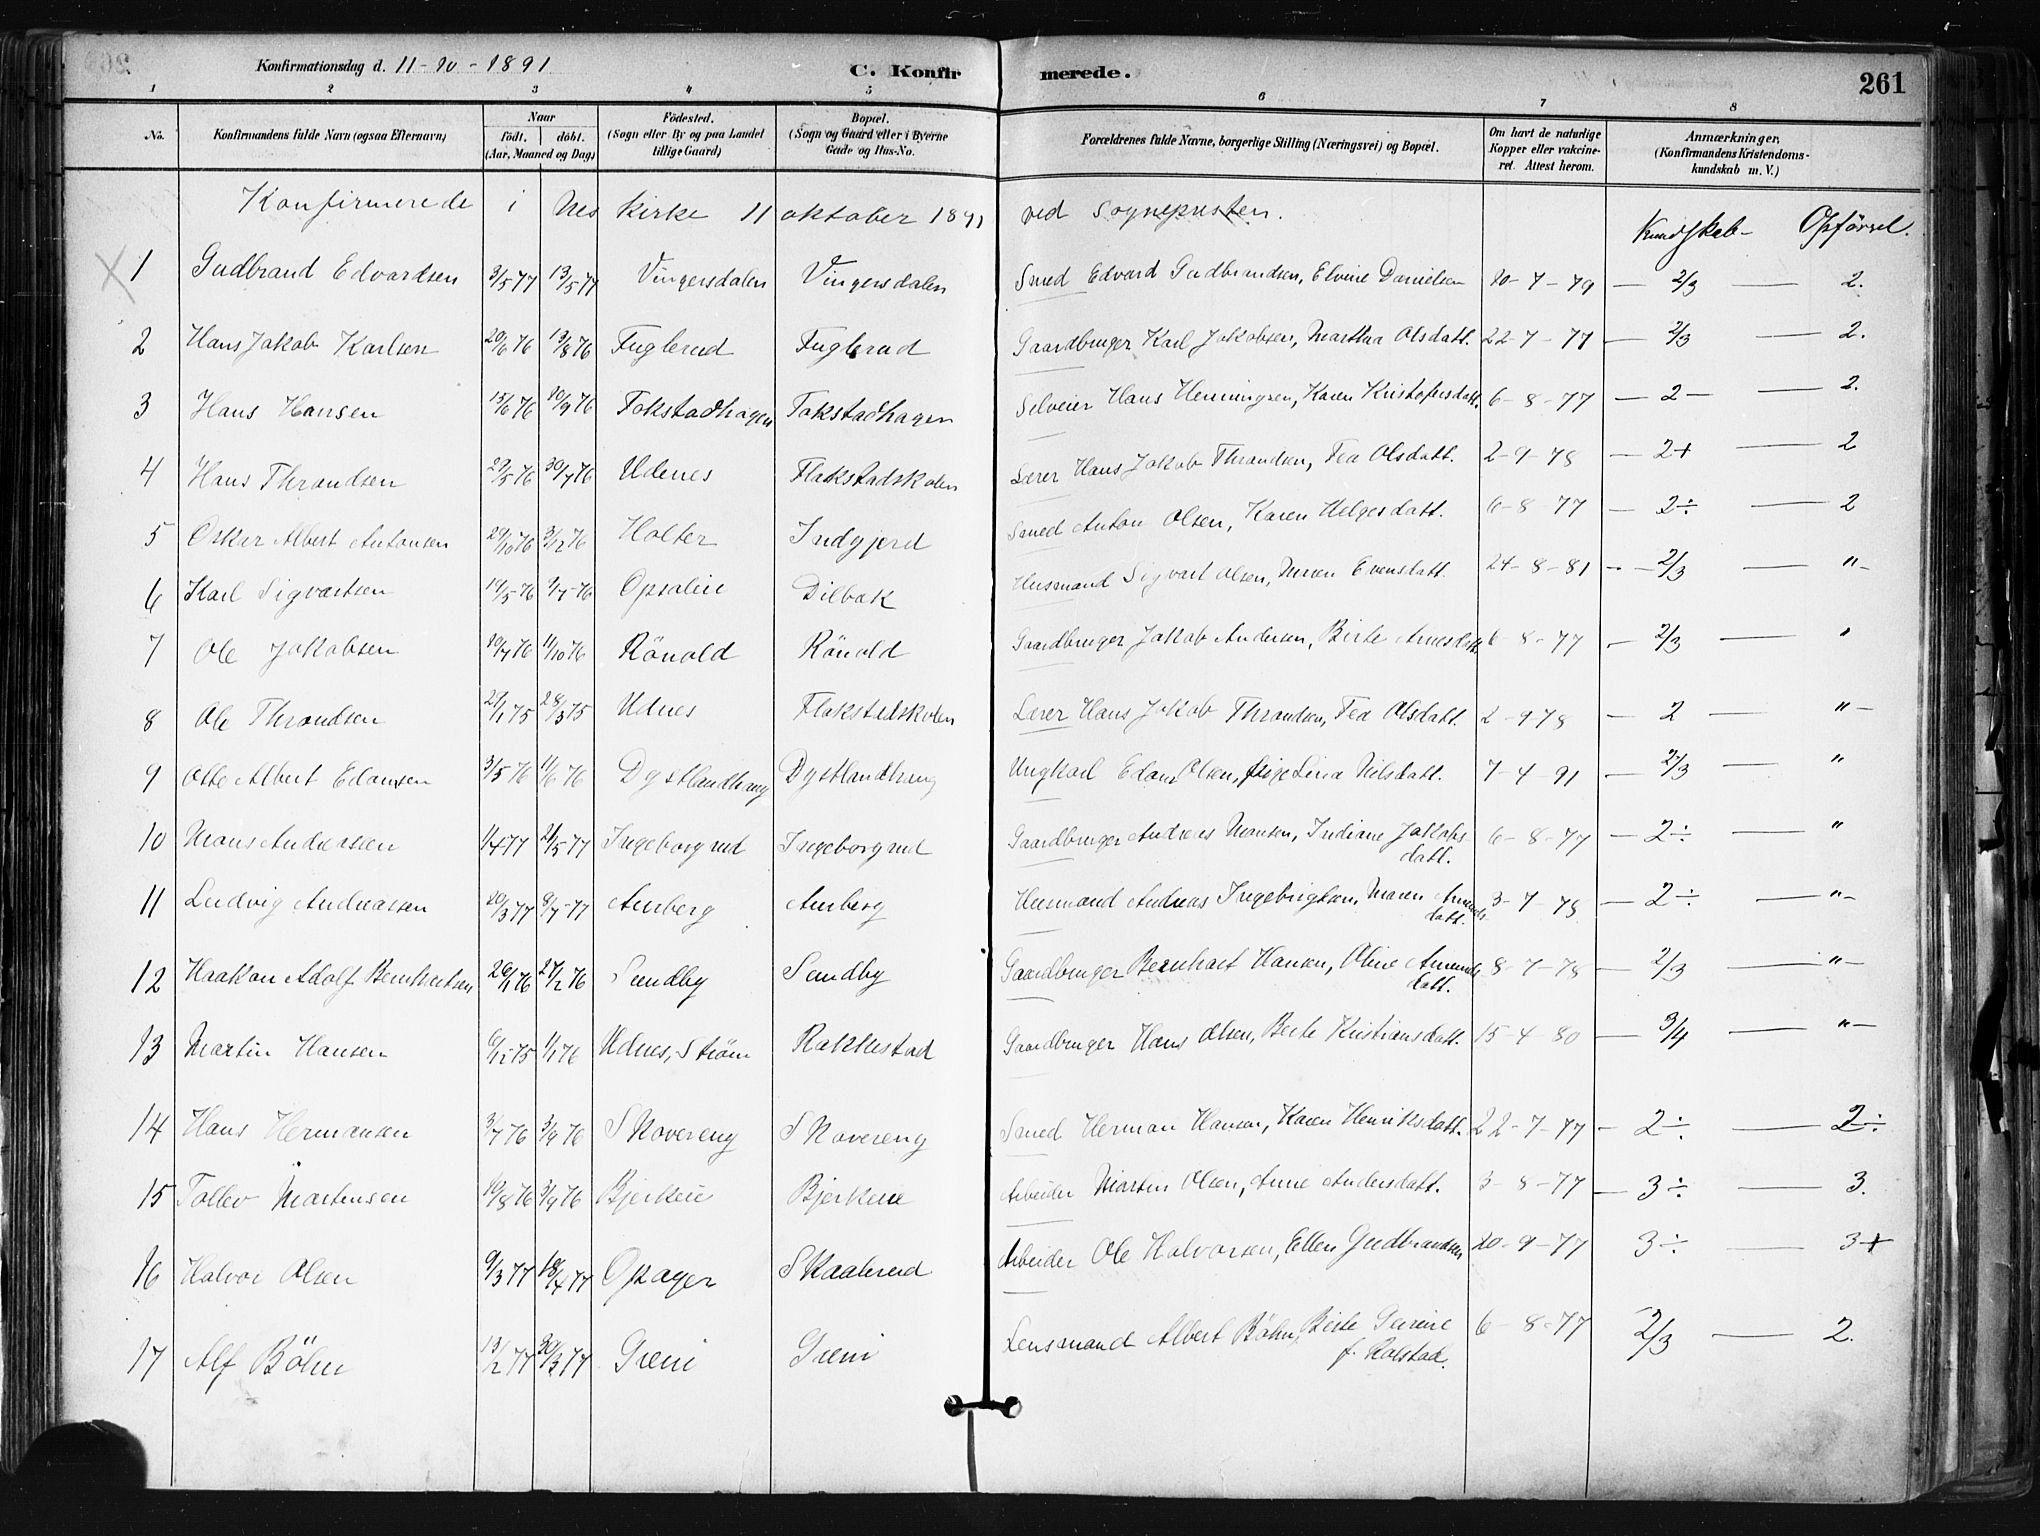 Konfirmationsdag d. 11-10-1891 C. Konfirmerede. 261
1 2 3 4 5 6 7 8
No. Konfirmandens fulde Navn (ogsaa Efternavn) Naar født. døbt. (Aar, Maaned og Dag) Fødested. (Sogn eller By og paa Landet tillige Gaard) Bopæl. (Sogn og Gaard eller i Byerne Gade og Hus-No. Forældrenes fulde Navne, borgerlige Stilling (Næringsvei) og Bopæl. Om havt de naturlige Kopper eller vakcineret. Attest herom. Anmærkninger, (Konfirmandens Kristendomskundskab m. V.)
Konfirmerede i Nes kirke 11 oktober 1891 ved sognepresten. Kundskab- Opførsel.
1 Gudbrand Edvardsen 3/5 77 13/5 77 Vingersdalen Vingersdalen Smed Edvard Gudbrandsen, Elvine Danielsen 10-7-79 — 2/3 — 2.
2 Hans Jakob Karlsen 20/6 76 13/8 76 Fuglerud Fuglerud Gaardbruger Karl Jakobsen, Marthea Olsdatt. 22-7-77 — 2/3 — 2.
3 Hans Hansen 15/6 76 10/9 76 Fokstadhagen Fokstadhagen Selveier Hans Henningsen, Karen Kristofersdatt. 6-8-77 — 2 — 2.
4 Hans Throndsen 27/5 76 30/7 76 Udenes Flakstadskolen Lærer Hans Jakob Throndsen, Fea Olsdatt. 2-9-78 — 2+ — 2
5 Oskar Albert Antonsen 29/10 76 3/12 76 Holter Indgjerd Smed Anton Olsen, Karen Helgesdatt. 6-8-77 — 2÷ — 2
6 Karl Sigvartsen 19/5-76 9/7-76 Opsaleie Dilbak Husmand Sigvart Olsen, Maren Evensdatt. 24-8-81 — 2/3 — "-
7 Ole Jakobsen 10/7 76 1/10 76 Rönold Rönold Gaardbruger Jakob Andersen, Birte Arnesdatt. 6-8-77 — 2/3 — "
8 Ole Throndsen 21/1 75 28/3 75 Udnes Flakstadskolen Lærer Hans Jakob Throndsen, Fea Olsdatt. 2-9 78 — 2 — "-
9 Otto Albert Edansen 3/5 76 11/6 76 Dystlandhaug Dystlandhaug Ungkarl Edan Olsen, Pige Lina Nilsdatt. 7-4-91 — 2/3 — "
10 Mons Andreassen 1/4 77 21/5 77 Ingeborgrud Ingeborgrud Gaardbruger Andreas Monsen, Indiane Jakobsdatt. 6-8-77 — 2÷ — "
11 Ludvig Andreassen 20/3 77 8/7-77 Aurberg Aurberg Husmand Andreas Ingebrigtsen, Maren Amundsdatt. 3-7-78 — 2÷ — "-
12 Haakon Adolf Bernhartsen 26/1 76 27/2 76 Sundby Sundby Gaardbruger Bernhart Hansen, Oline Amundsdatt. 8-7-78 — 2/3 — "-
13 Martin Hansen 6/12 75 1/1 76 Udnes, Strøm Rakkestad Gaardbruger Hans Olsen, Berte Kristiansdatt. 15-4-80 — 3/4 — "-
14 Hans Hermansen 3/7 76 3/9 76 Skovereng Skovereng Smed Herman Hansen, Karen Henriksdatt. 22-7-77 — 2÷ — 2÷
15 Tollev Martinsen 10/8 76 3/9 76 Bjerkeie Bjerkeie Arbeider Martin Olsen, Anne Andersdatt. 3-8-77 — 3÷ — 3.
16 Halvor Olsen 9/3 77 18/4 77 Opager Skaalerud Arbeider Ole Halvorsen, Ellen Gudbrandsen 20-9-77 3÷ — 3+
17 Alf Böhn 13/2 77 30/3 77 Greni Greni Lensmand Albert Böhn, Berte Gurine f. Rolstad. 6-8-77 2/3 — 2.